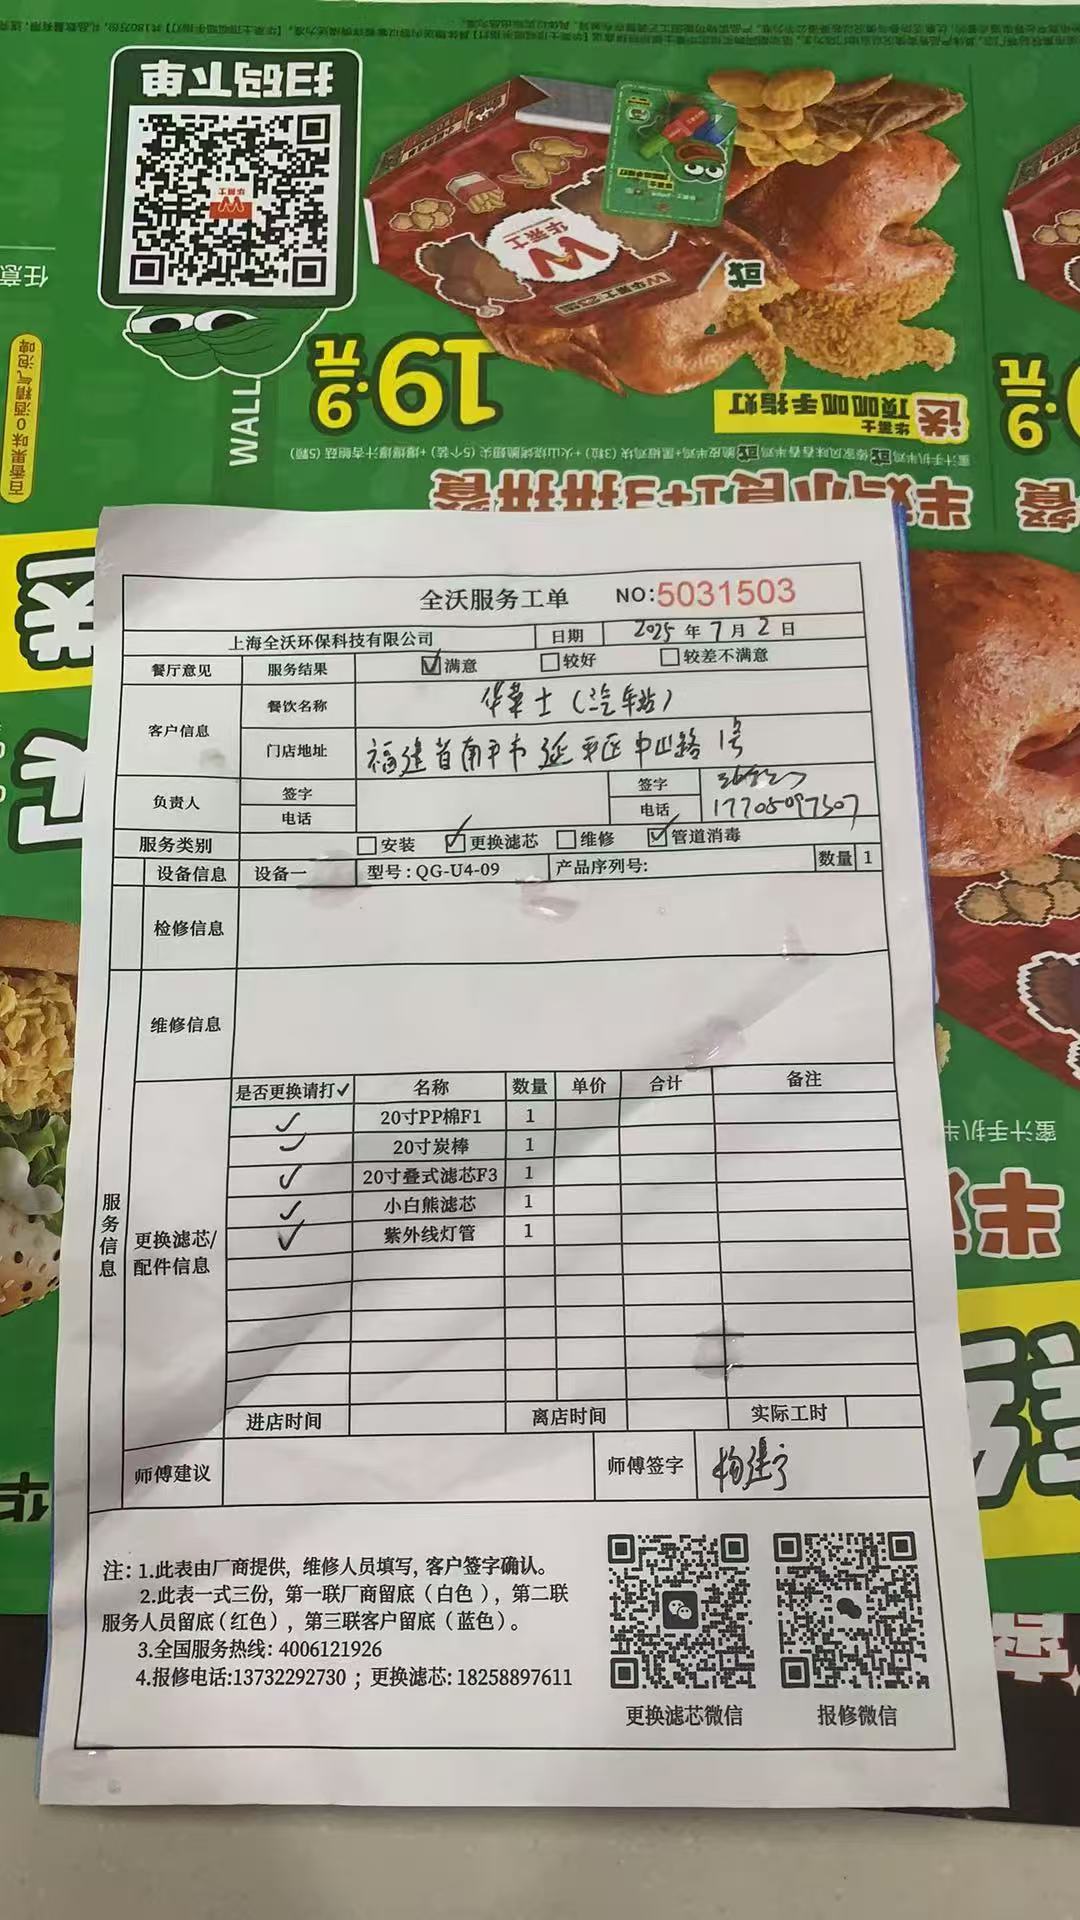 扫码下单
华莱士
WALL
19.9元
或
华莱士
送顶呱呱手指灯
百香果味0酒精气泡啤
任意
全沃服务工单 NO:5031503
上海全沃环保科技有限公司 日期 2025年7月2日
餐厅意见 服务结果 ☑满意 □较好 □较差不满意
客户信息 餐饮名称 华莱士（汽车站）
门店地址 福建省南平市延平区中山路1号
负责人 签字 签字
电话 电话 17705097507
服务类别 □安装 ☑更换滤芯 □维修 ☑管道消毒
设备信息 设备一 型号:QG-U4-09 产品序列号: 数量 1
检修信息
维修信息
服务信息
更换滤芯/配件信息
是否更换请打✓ 名称 数量 单价 合计 备注
✓ 20寸PP棉F1 1
✓ 20寸炭棒 1
✓ 20寸叠式滤芯F3 1
✓ 小白熊滤芯 1
✓ 紫外线灯管 1
进店时间 离店时间 实际工时
师傅建议 师傅签字
注: 1.此表由厂商提供, 维修人员填写, 客户签字确认。
2.此表一式三份, 第一联厂商留底（白色）, 第二联
服务人员留底(红色）, 第三联客户留底（蓝色）。
3.全国服务热线: 4006121926
4.报修电话:13732292730 ; 更换滤芯: 18258897611
更换滤芯微信 报修微信